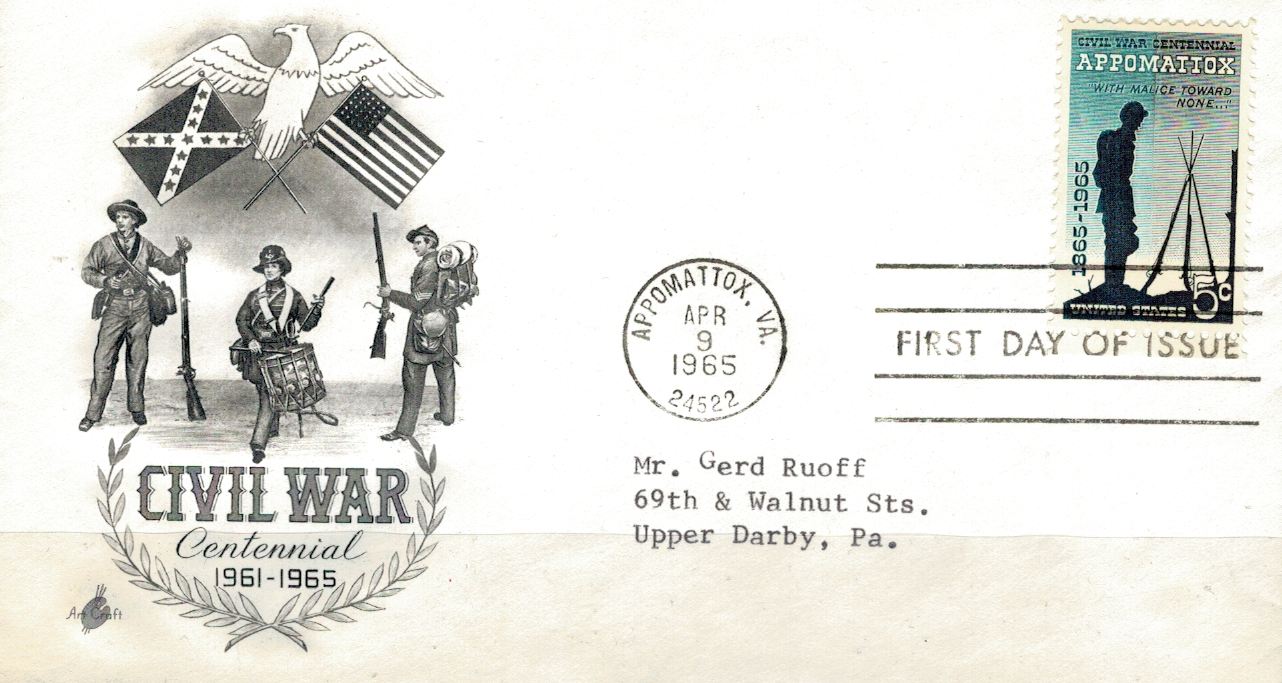 CIVIL WAR CENTENNIAL
APPOMATTOX
"WITH MALICE TOWARD
NONE..."
1865-1965
UNITED STATES
5c
APPOMATTOX, VA.
APR
9
1965
24522
FIRST DAY OF ISSUE
Mr. Gerd Ruoff
69th & Walnut Sts.
Upper Darby, Pa.
CIVIL WAR
Centennial
1961-1965
Art Craft